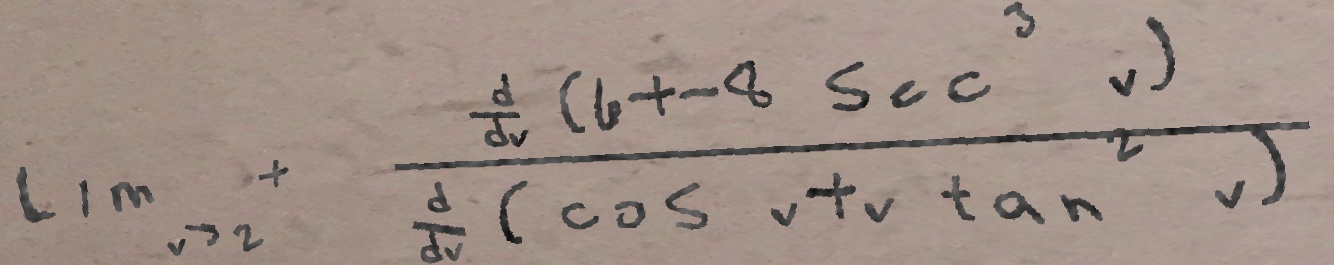 \lim_{v \to 2^+} \frac{\frac{d}{dv}(6+-8 \sec^3 v)}{\frac{d}{dv}(\cos v+v \tan^2 v)}